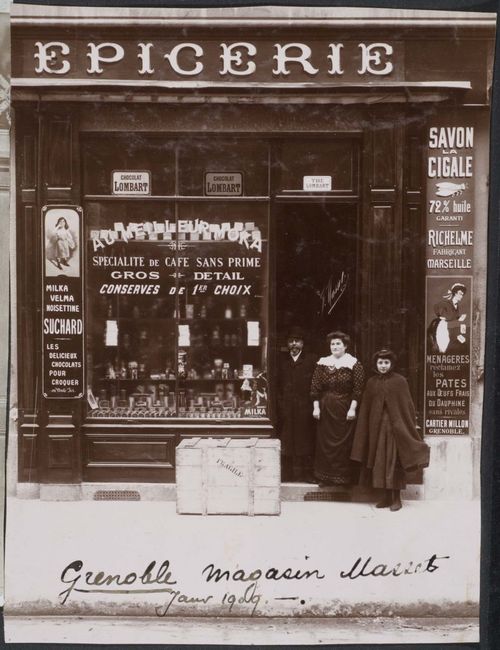 EPICERIE
CHOCOLAT
LOMBART
CHOCOLAT
LOMBART
THE
LOMBART
AU MEILLEUR MOKA
SPECIALITE DE CAFE SANS PRIME
GROS - DETAIL
CONSERVES DE 1ER CHOIX
MILKA
VELMA
NOISETTINE
SUCHARD
LES
DELICIEUX
CHOCOLATS
POUR
CROQUER
MILKA
SAVON
LA
CIGALE
72% huile
GARANTI
RICHELME
FABRICANT
MARSEILLE
MENAGERES
réclamez
les
PATES
AUX ŒUFS FRAIS
DU DAUPHINÉ
sans rivales
CARTIER MILLON
GRENOBLE.
FRAGILE
Grenoble magasin Masset
Janv 1909 -.